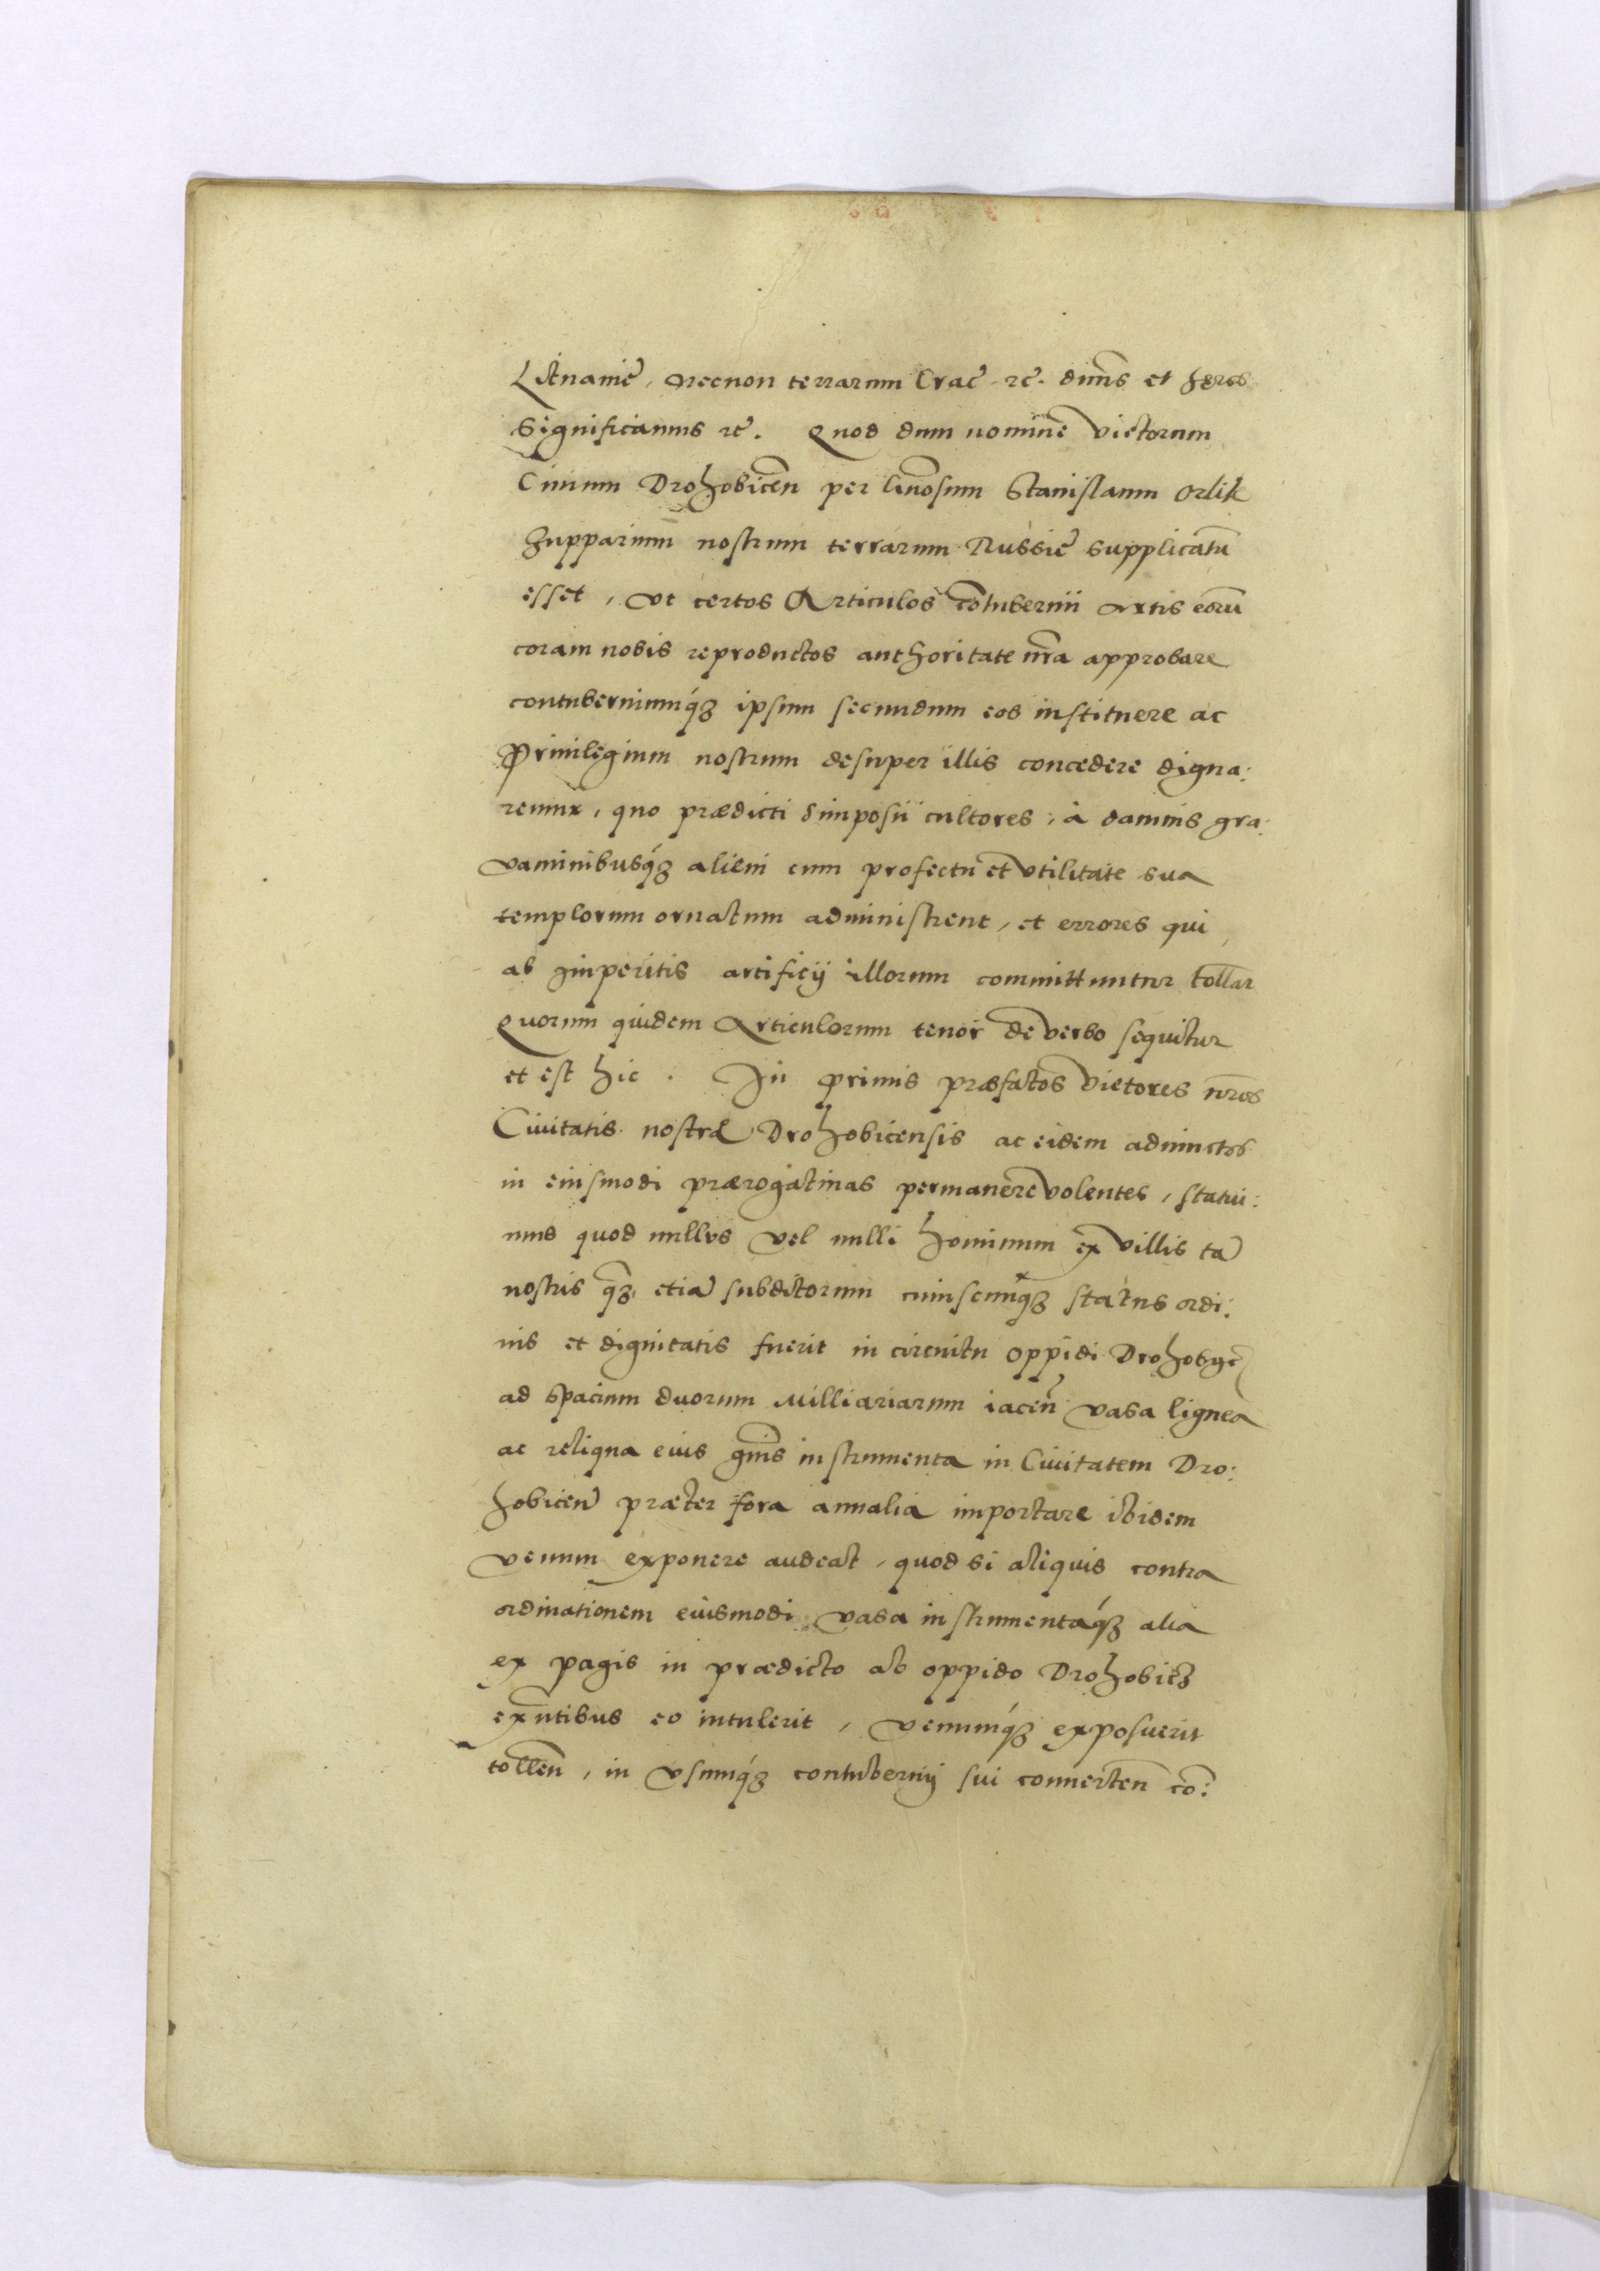 Lituaniē, necnon terrarum Crac̄ rc̄. dnn̄s et heres
Significamus rc̄. Quod dum nomine Vietorum
Ciuium Drohobiceñ per Gn̄osum Stanislaum Orlik
Zupparium nostrum terrarum Russiē supplicatū
esset, vt certos Articulos cōtubernii artis eorū
coram nobis reproductos authoritate nr̄a approbare
contuberniumq́ʒ ipsum secundum eos instituere ac
Priuilegium nostrum desuper illis concedere digna:
remur, quo prædicti Simposii cultores, à damnis gra:
vaminibusq́ʒ alieni cum profectu et vtilitate sua
templorum ornatum administrent, et errores qui
ab imperitis artificij illorum committuntur tollar̄
Quorum quidem Articulorum tenor de verbo sequitur
et est hic. In primis præfatos Vietores nr̄os
Ciuitatis nostræ Drohobicensis ac eidem adiunctos
in eiusmodi prærogatiuas permanere volentes, statui:
mus quod nullus vel nulli hominum ex villis tā
nostris q̄ʒ etiā subditorum cuiuscunq́ʒ status ordi:
nis et dignitatis fuerit in circuitu oppidi Drohobyc̄
ad spacium duorum Milliariarum iaceñ vasa lignea
ac reliqua eius gn̄is instrumenta in Ciuitatem Dro:
hobiceñ præter fora annalia importare ibidem
venum exponere audeat, quod si aliquis contra
ordinationem eiusmodi vasa instrumentaq́ʒ alia
ex pagis in prædicto ab oppido Drohobicʒ
exn̄tibus eo intulerit, venumq́ʒ exposuerit
tolleñ, in vsumq́ʒ contubernij sui conuerteñ cō: